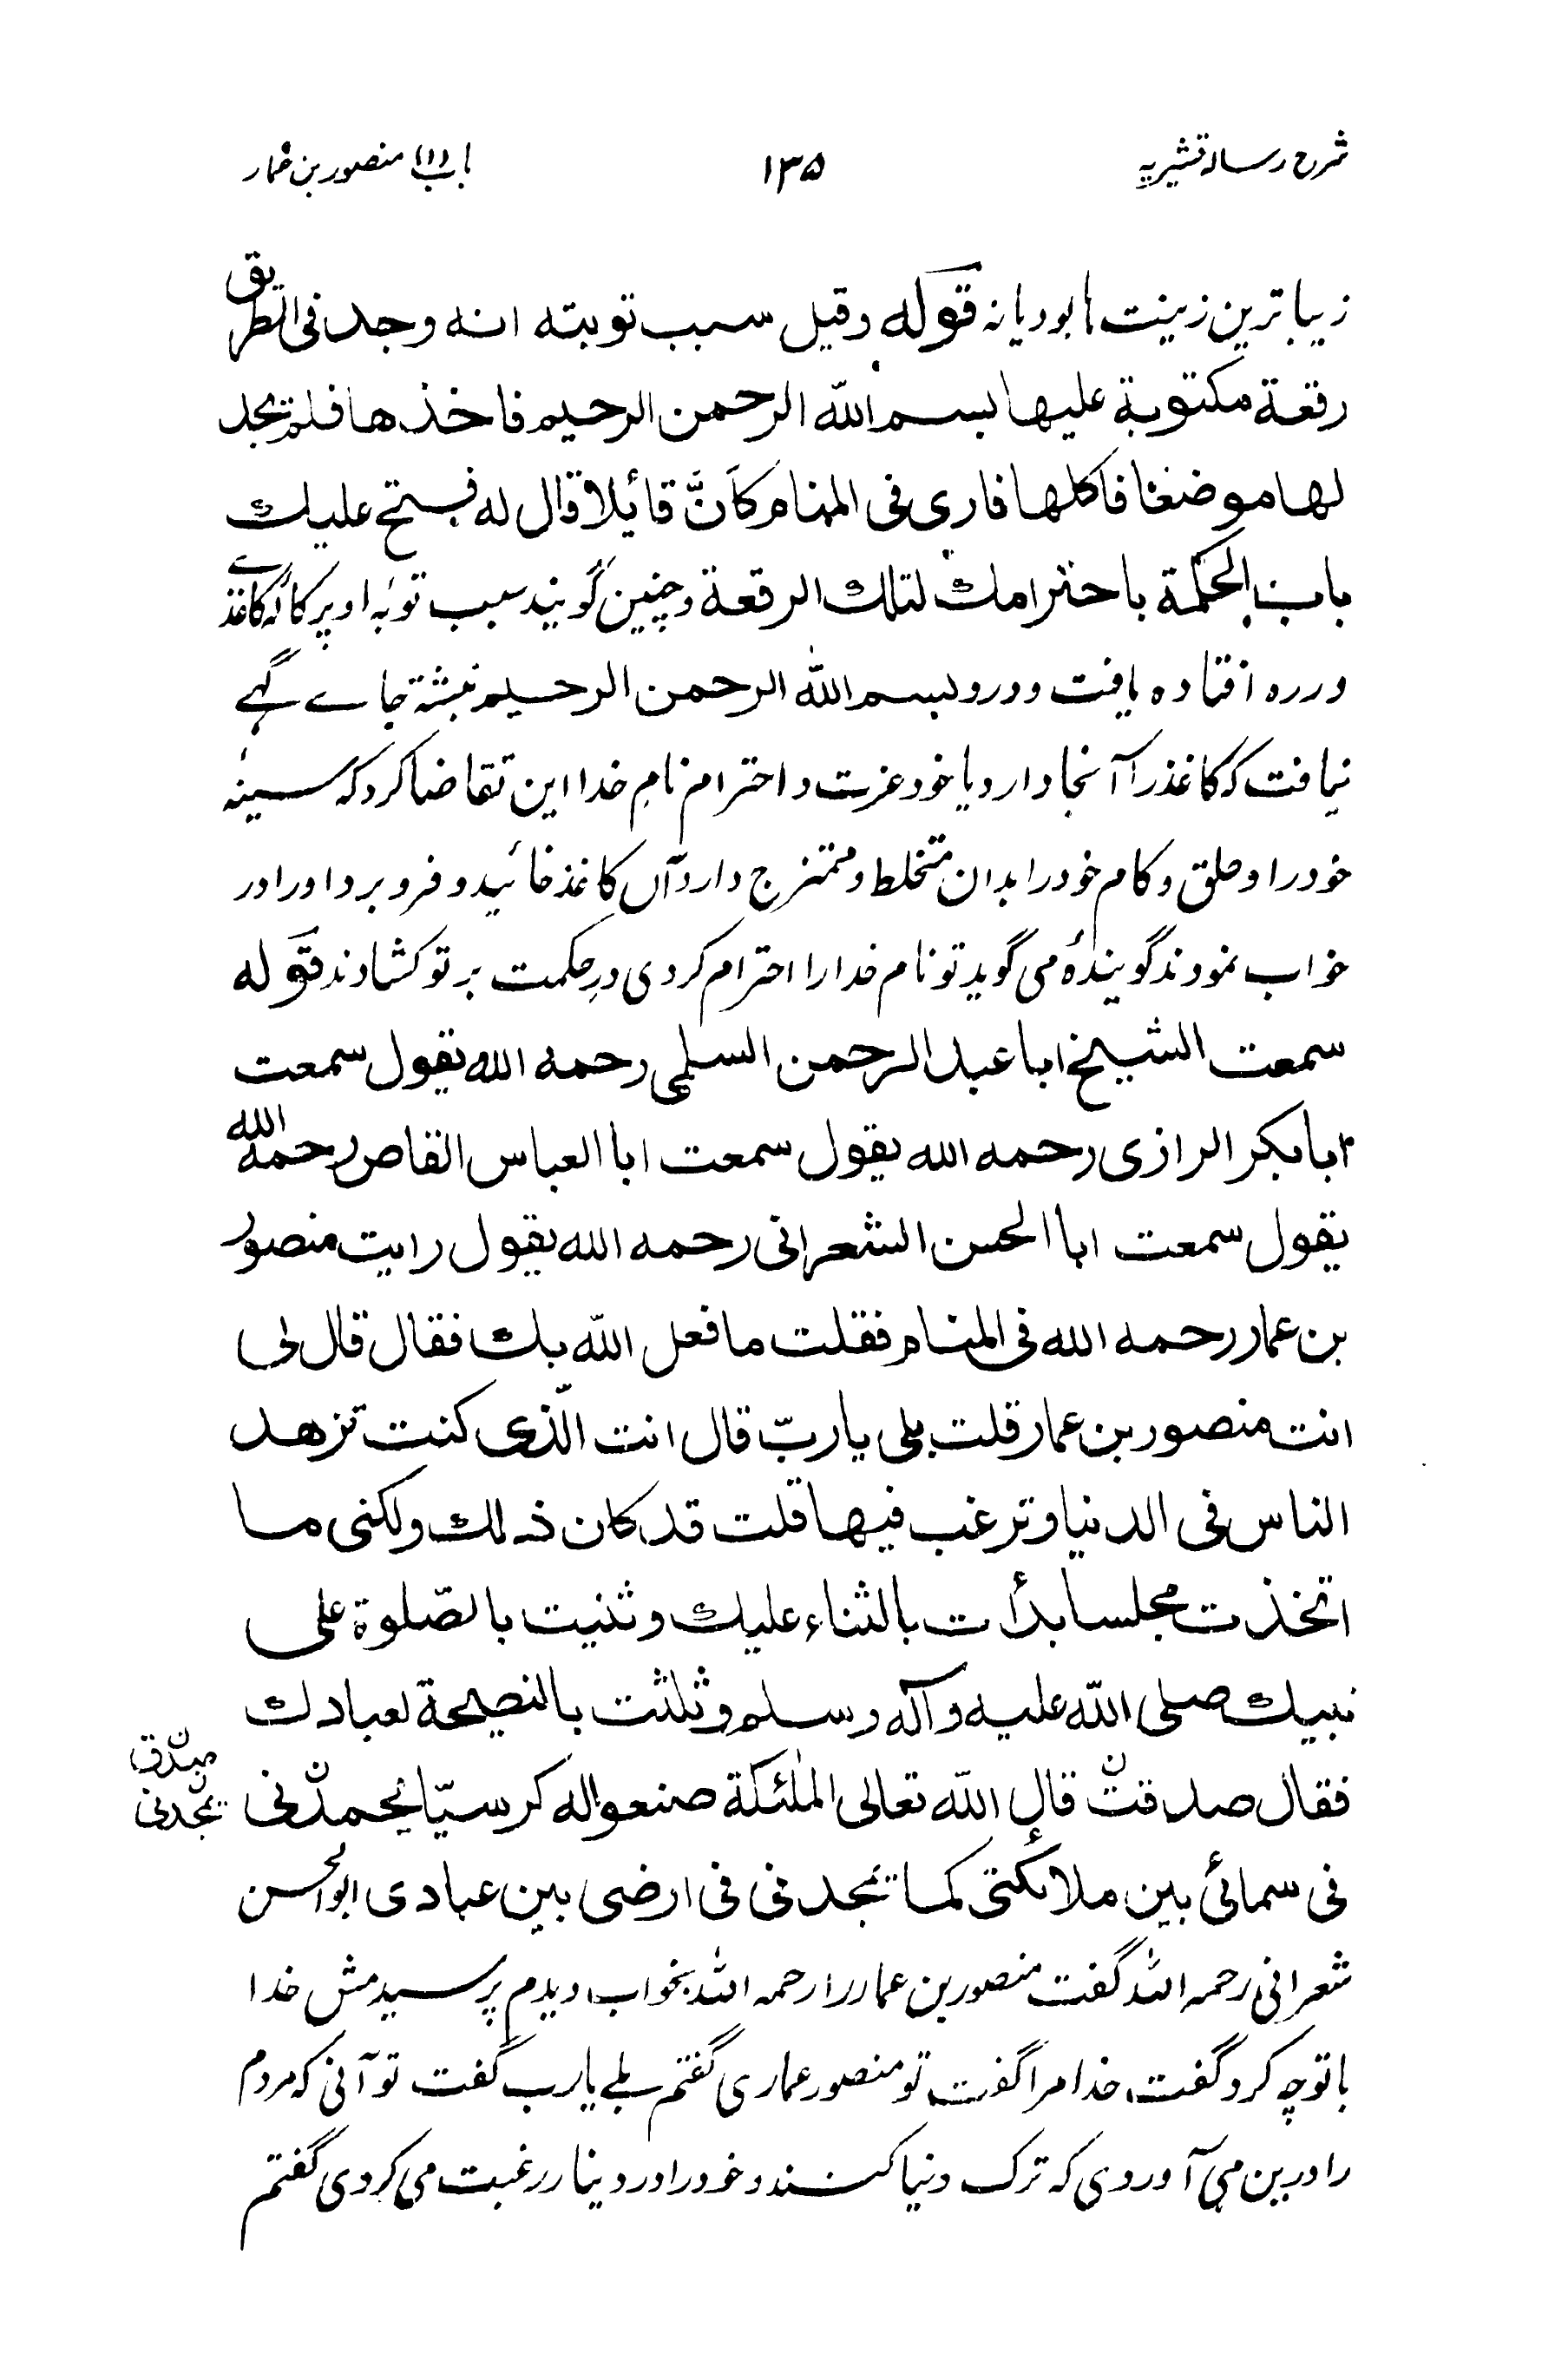 شرح رسالہ قشیریہ ۱۳۵ باب (۱۱) منصور بن عمار
زیبا ترین زینت ما بود یا نہ قوله وقیل سبب توبته انه وجد فی الطریق
رقعة مکتوبة علیها بسم الله الرحمن الرحیم فاخذها فلم یجد
لها موضعا فاکلها فاری فی المنام کأنَّ قائلا قال له فتح علیك
باب الحکمة باحترامك لتلك الرقعة وچنین گویند سبب توبۂ او پرکالۂ کاغذے
در رہ افتادہ یافت و درو بسم الله الرحمن الرحیم نبشتہ جاے گہے
نیافت کہ کاغذ را آنجا دارد یا خود عزت و احترام نامِ خدا این تقاضا کرد کہ سینۂ
خود را و حلق و کام خود را بدان مختلط و ممتزج دارد آں کاغذ خائید و فرو برد او را در
خواب نمودند گویندۂ می گوید تو نام خدا را احترام کردی درِ حکمت بر تو کشادند قوله
سمعت الشیخ ابا عبد الرحمن السلمی رحمه الله یقول سمعت
ابا بکر الرازی رحمه الله یقول سمعت ابا العباس القاص رحمه الله
یقول سمعت ابا الحسن الشعرانی رحمه الله یقول رایت منصور
بن عمار رحمه الله فی المنام فقلت ما فعل الله بك فقال قال لی
انت منصور بن عمار قلت بلی یا ربّ قال انت الّذی کنت تزهد
الناس فی الدنیا و ترغب فیها قلت قد کان ذلك ولکنی ما
اتخذت مجلسا بدأت بالثناء علیك وثنیت بالصّلوة علی
نبیك صلی الله علیه وآله وسلم وثلثت بالنصیحة لعبادك
فقال صدقت قال الله تعالی الملٰئکة صنعوا له کرسیّا یحمدنی
صدق
یمجدنی
فی سمائی بین ملائکتی کما یمجدنی فی ارضی بین عبادی ابوالحسن
شعرانی رحمہ اللہ گفت منصور بن عمار را رحمہ اللہ بخواب دیدم پرسیدمش خدا
با تو چہ کرد گفت خدا مرا گفت تو منصور عماری گفتم بلے یا رب گفت تو آنی کہ مردم
را درین می آوردی کہ ترک دنیا کنند و خود را در دنیا رغبت می کردی گفتم